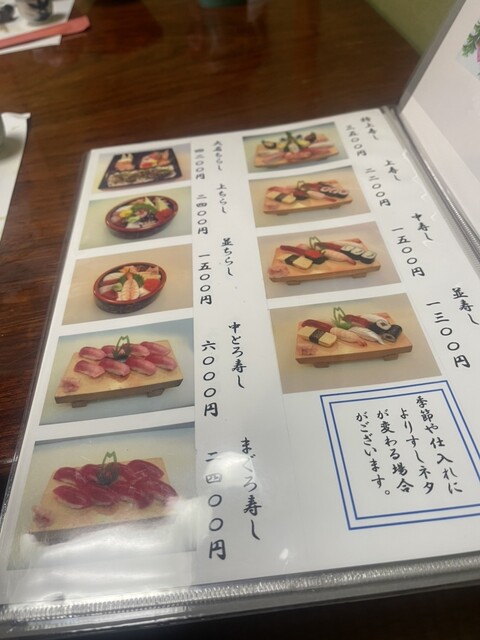 特上寿し
三五〇〇円
上寿し
二二〇〇円
中寿し
一五〇〇円
並寿し
一三〇〇円
季節や仕入れに
よりすしネタ
が変わる場合
がございます。
上ちらし
二四〇〇円
並ちらし
一五〇〇円
中とろ寿し
六〇〇〇円
まぐろ寿し
二四〇〇円